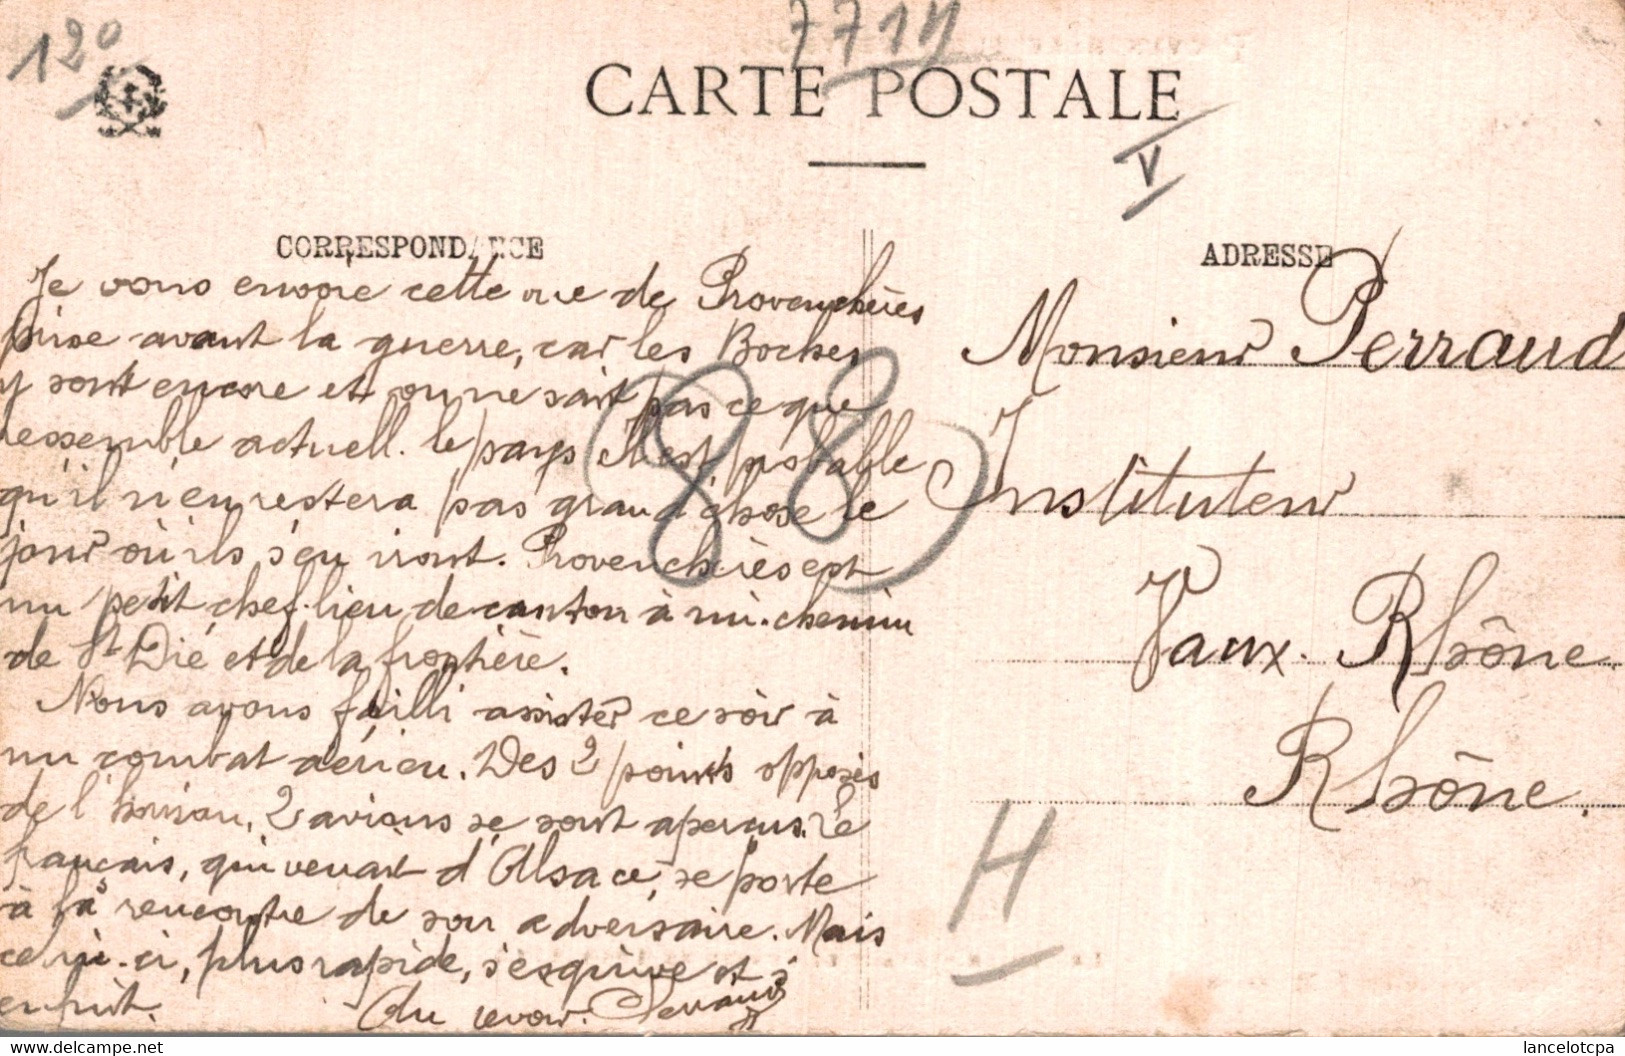 120
7714
CARTE POSTALE
V
CORRESPONDANCE
ADRESSE
Je vous envoie cette vue de Provenchères
prise avant la guerre, car les Boches
y sont encore et on ne sait pas ce que
ressemble actuell. le pays Il est probable
qu'il n'en restera pas grand'chose le
jour où ils s'en iront. Provenchères est
un petit chef-lieu de canton à mi-chemin
de St Dié et de la frontière.
Nous avons failli assister ce soir à
un combat aérien. Des 2 points opposés
de l'horizon, 2 avions se sont aperçus. Le
français, qui venait d'Alsace, se porte
à la rencontre de son adversaire. Mais
celui-ci, plus rapide, s'esquive et s'
enfuit. Au revoir.
88
Monsieur Perraud
Instituteur
Vaux. Rhône
Rhône.
H
www.delcampe.net
lancelotcpa